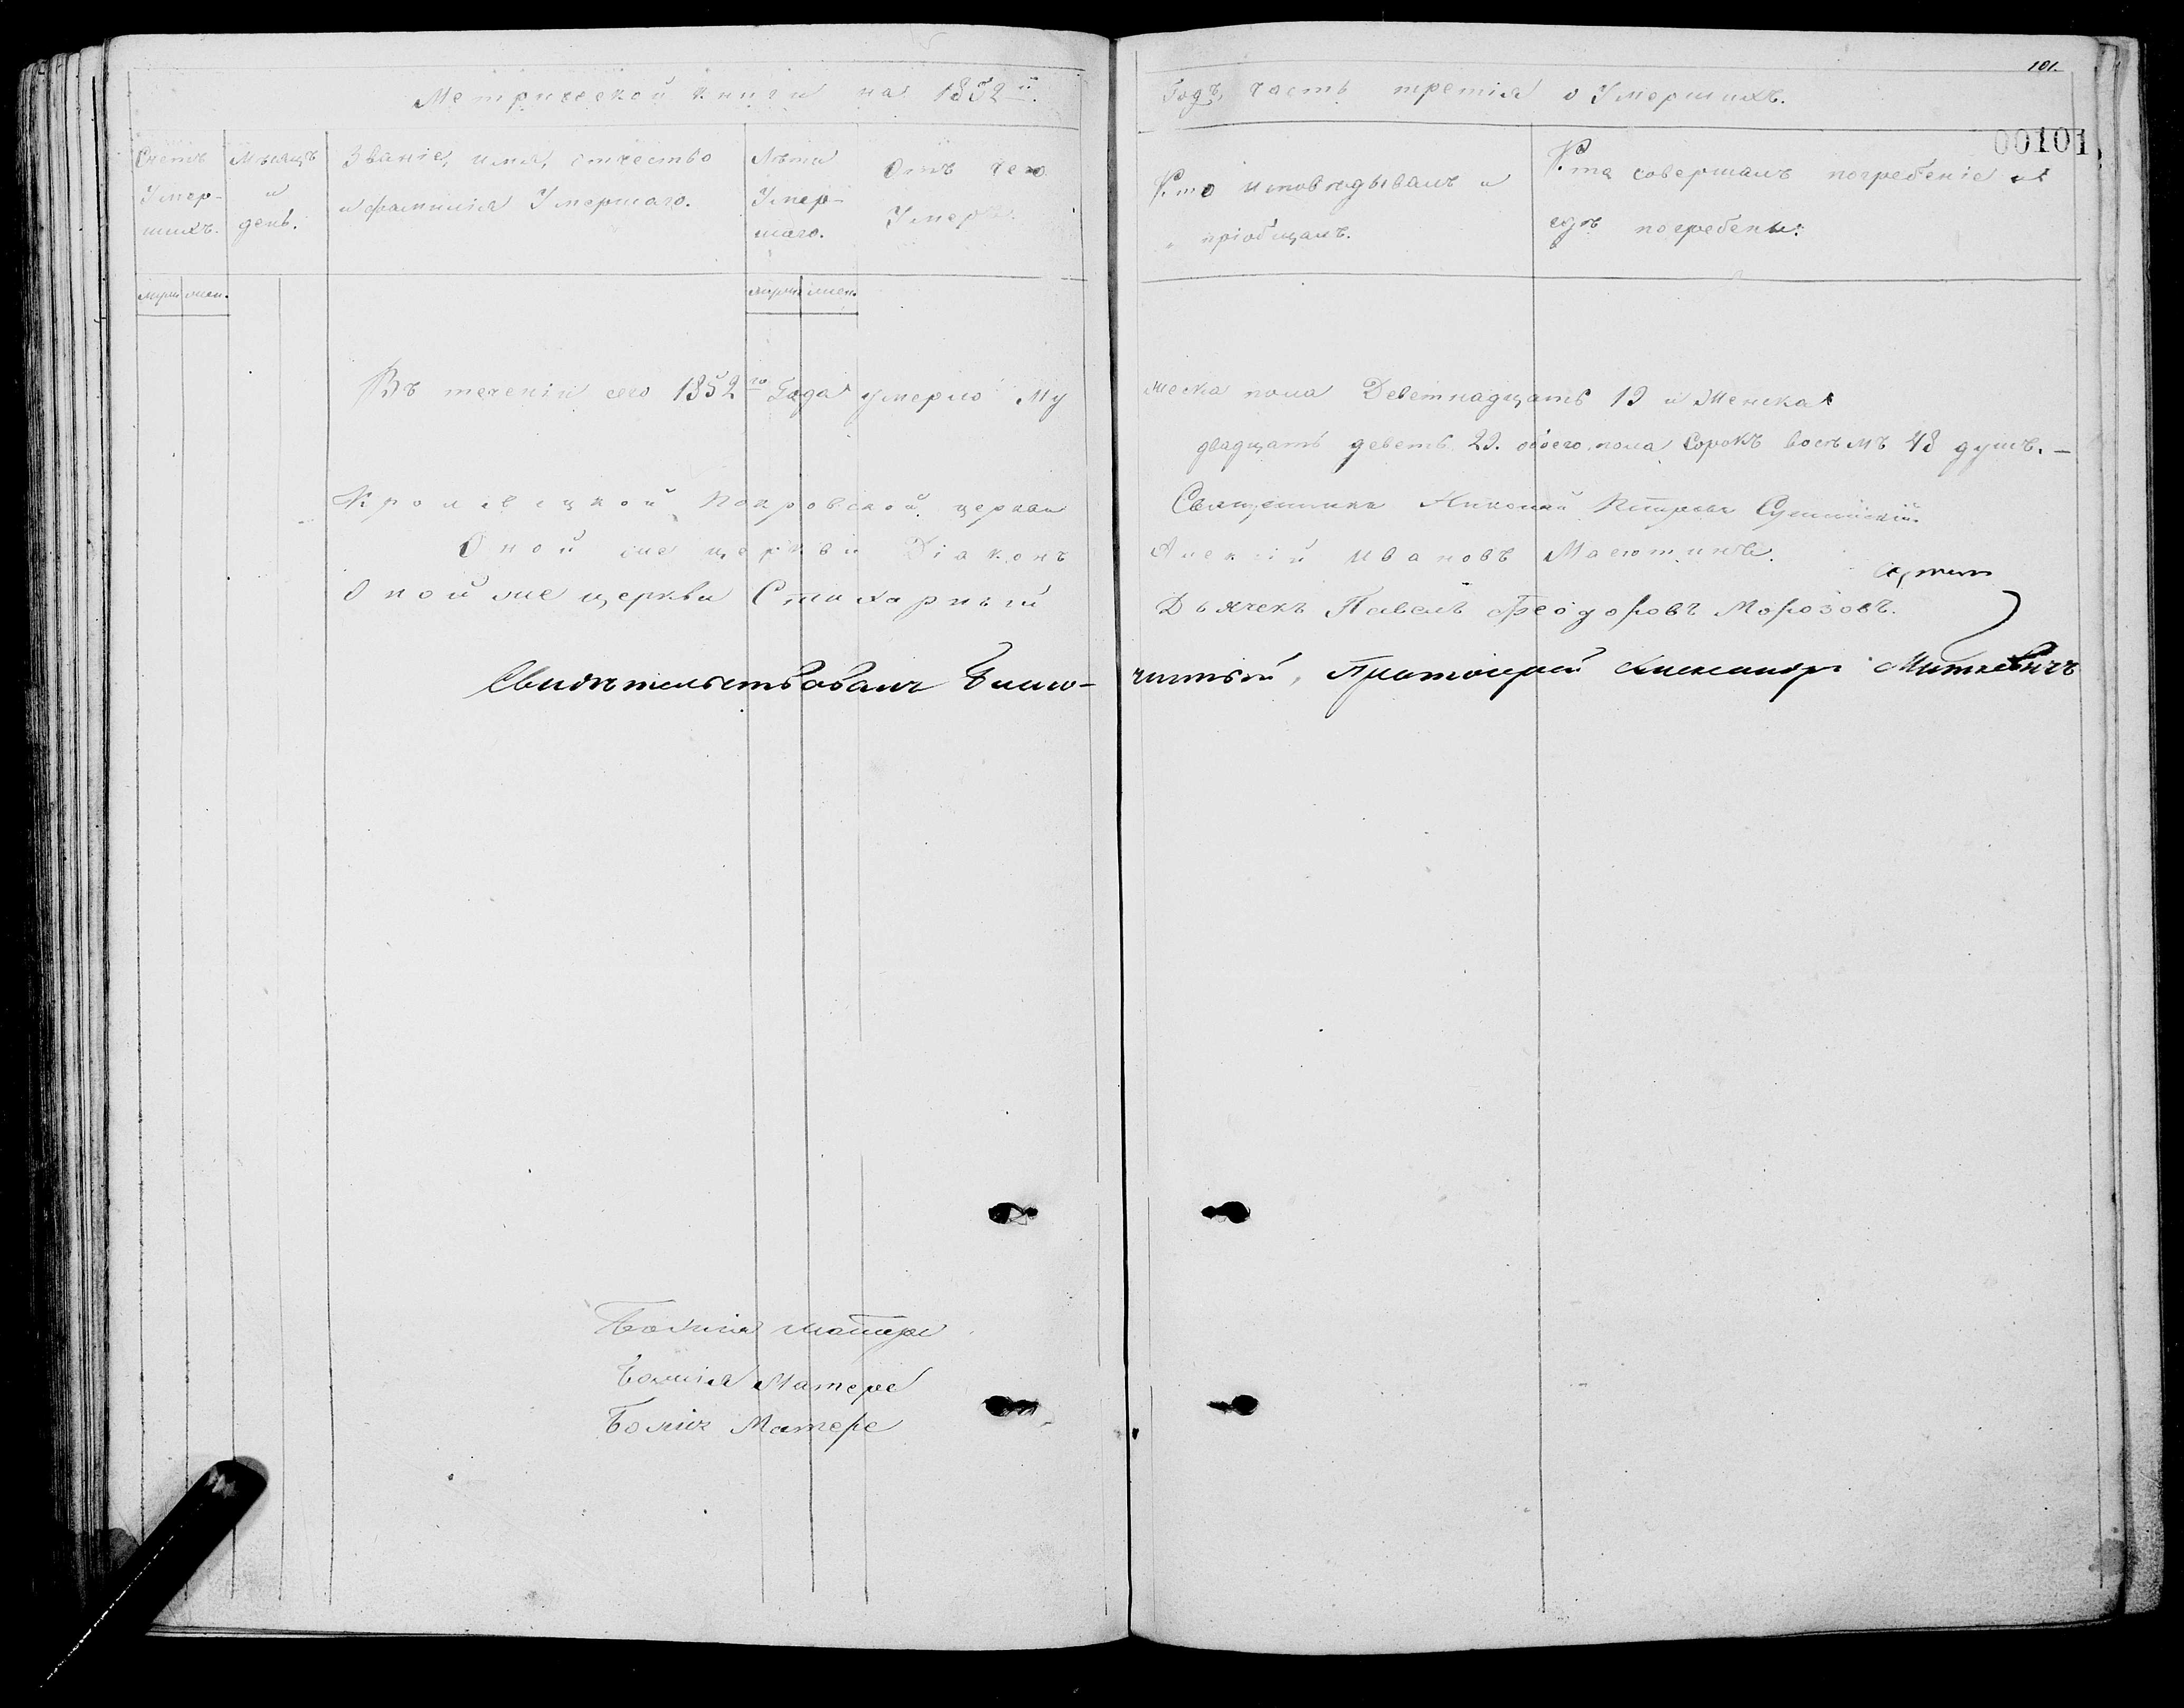 101.
00101
Метрической книги на 1852й.
Годъ, часть третія о Умершихъ.
Счетъ Умер-
шихъ.
Мѣсяцъ и
день.
Званіе, имя, отчество
и фамилія Умершаго.
Лѣта
Умер-
шаго.
Отъ чего
Умеръ.
Кто исповѣдывалъ и
пріобщалъ.
Кто совершалъ погребеніе и
гдѣ погребены.
муж. жен.
муж. жен.
Въ теченіи сего 1852го Года умерло Му
жеска пола Деветнадцать 19 и Женска
двадцать деветь 29. обоего пола Сорокъ восѣмъ 48 душъ.–
Кролевецкой Покровской церкви
Священникъ Николай Петровъ
Оной же церкви Діаконъ
Алексій Ивановъ Масютинъ.
Оной же церкви Стихарный
Дьячекъ Павелъ Феодоровъ Морозовъ.
Свидѣтельствовалъ Благо-
чинный, Протоіерей Александръ Миткевичъ
Божія Матере
Божія Матере
Божія Матере